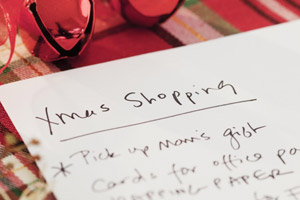 Xmas Shopping
* Pick up Mom's gift
Cards for office
WRAPPING PAPER